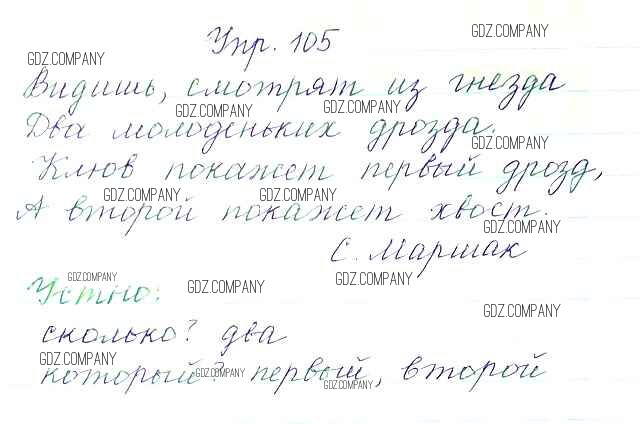 Упр. 105
GDZ.COMPANY
GDZ.COMPANY
Видишь, смотрят из гнезда
GDZ.COMPANY
GDZ.COMPANY
Два молоденьких дрозда.
GDZ.COMPANY
Клюв покажет первый дрозд,
GDZ.COMPANY
GDZ.COMPANY
А второй покажет хвост.
GDZ.COMPANY
С. Маршак
GDZ.COMPANY
GDZ.COMPANY
GDZ.COMPANY
Устно:
GDZ.COMPANY
сколько? два
GDZ.COMPANY
который? первый, второй
GDZ.COMPANY
GDZ.COMPANY